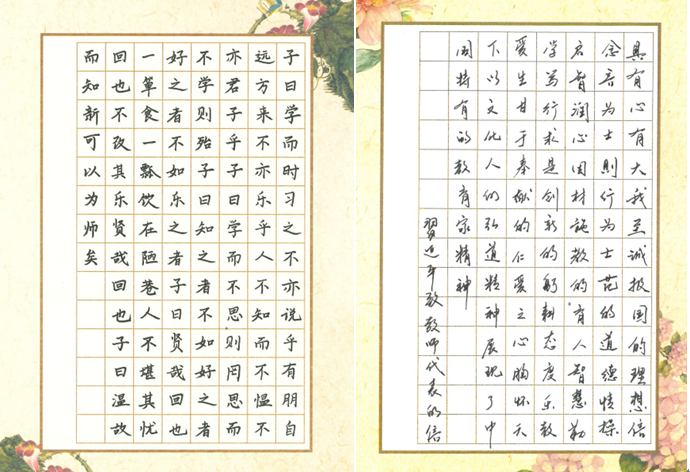 子曰学而时习之不亦说乎有朋自
远方来不亦乐乎人不知而不愠不
亦君子乎子曰学而不思则罔思而
不学则殆子曰知之者不如好之者
好之者不如乐之者子曰贤哉回也
一箪食一瓢饮在陋巷人不堪其忧
回也不改其乐贤哉回也子曰温故
而知新可以为师矣
具有心有大我至诚报国的理想信
念言为士則行为士范的道德情操
启智润心因材施教的育人智慧勤
学笃行求是创新的躬耕态度乐教
爱生甘于奉献的仁爱之心胸怀天
下以文化人的弘道精神展现了中
国特有的教育家精神
習近平致教师代表的信